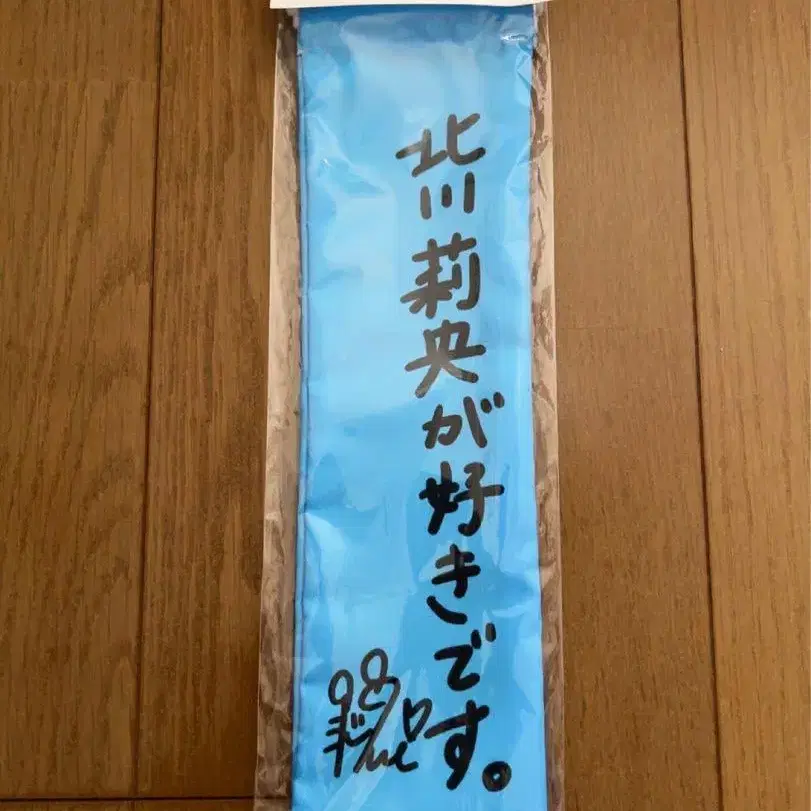 北川莉央が好きです。